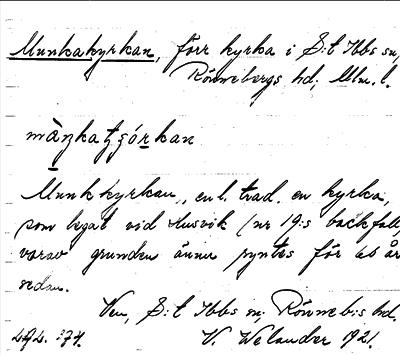 Munkakyrkan, förr kyrka i S:t Ibbs sn,
Rönnebergs hd, Mlm. l.
Munkkyrkan, enl. trad. en kyrka,
som legat vid Husvik (nr 19:s backfall),
varav grunden ännu syntes för 60 år
sedan.
Ven, S:t Ibbs sn. Rönneb:s hd.
V. Welander 1921.